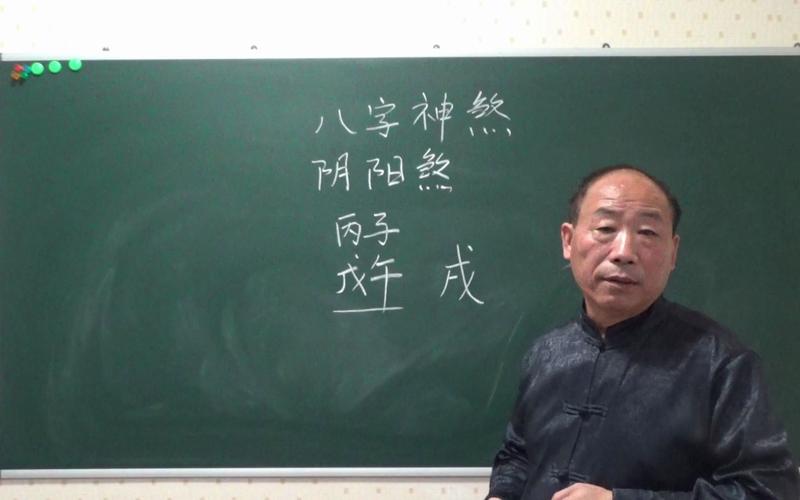 八字神煞
阴阳煞
丙子
戊午 戌